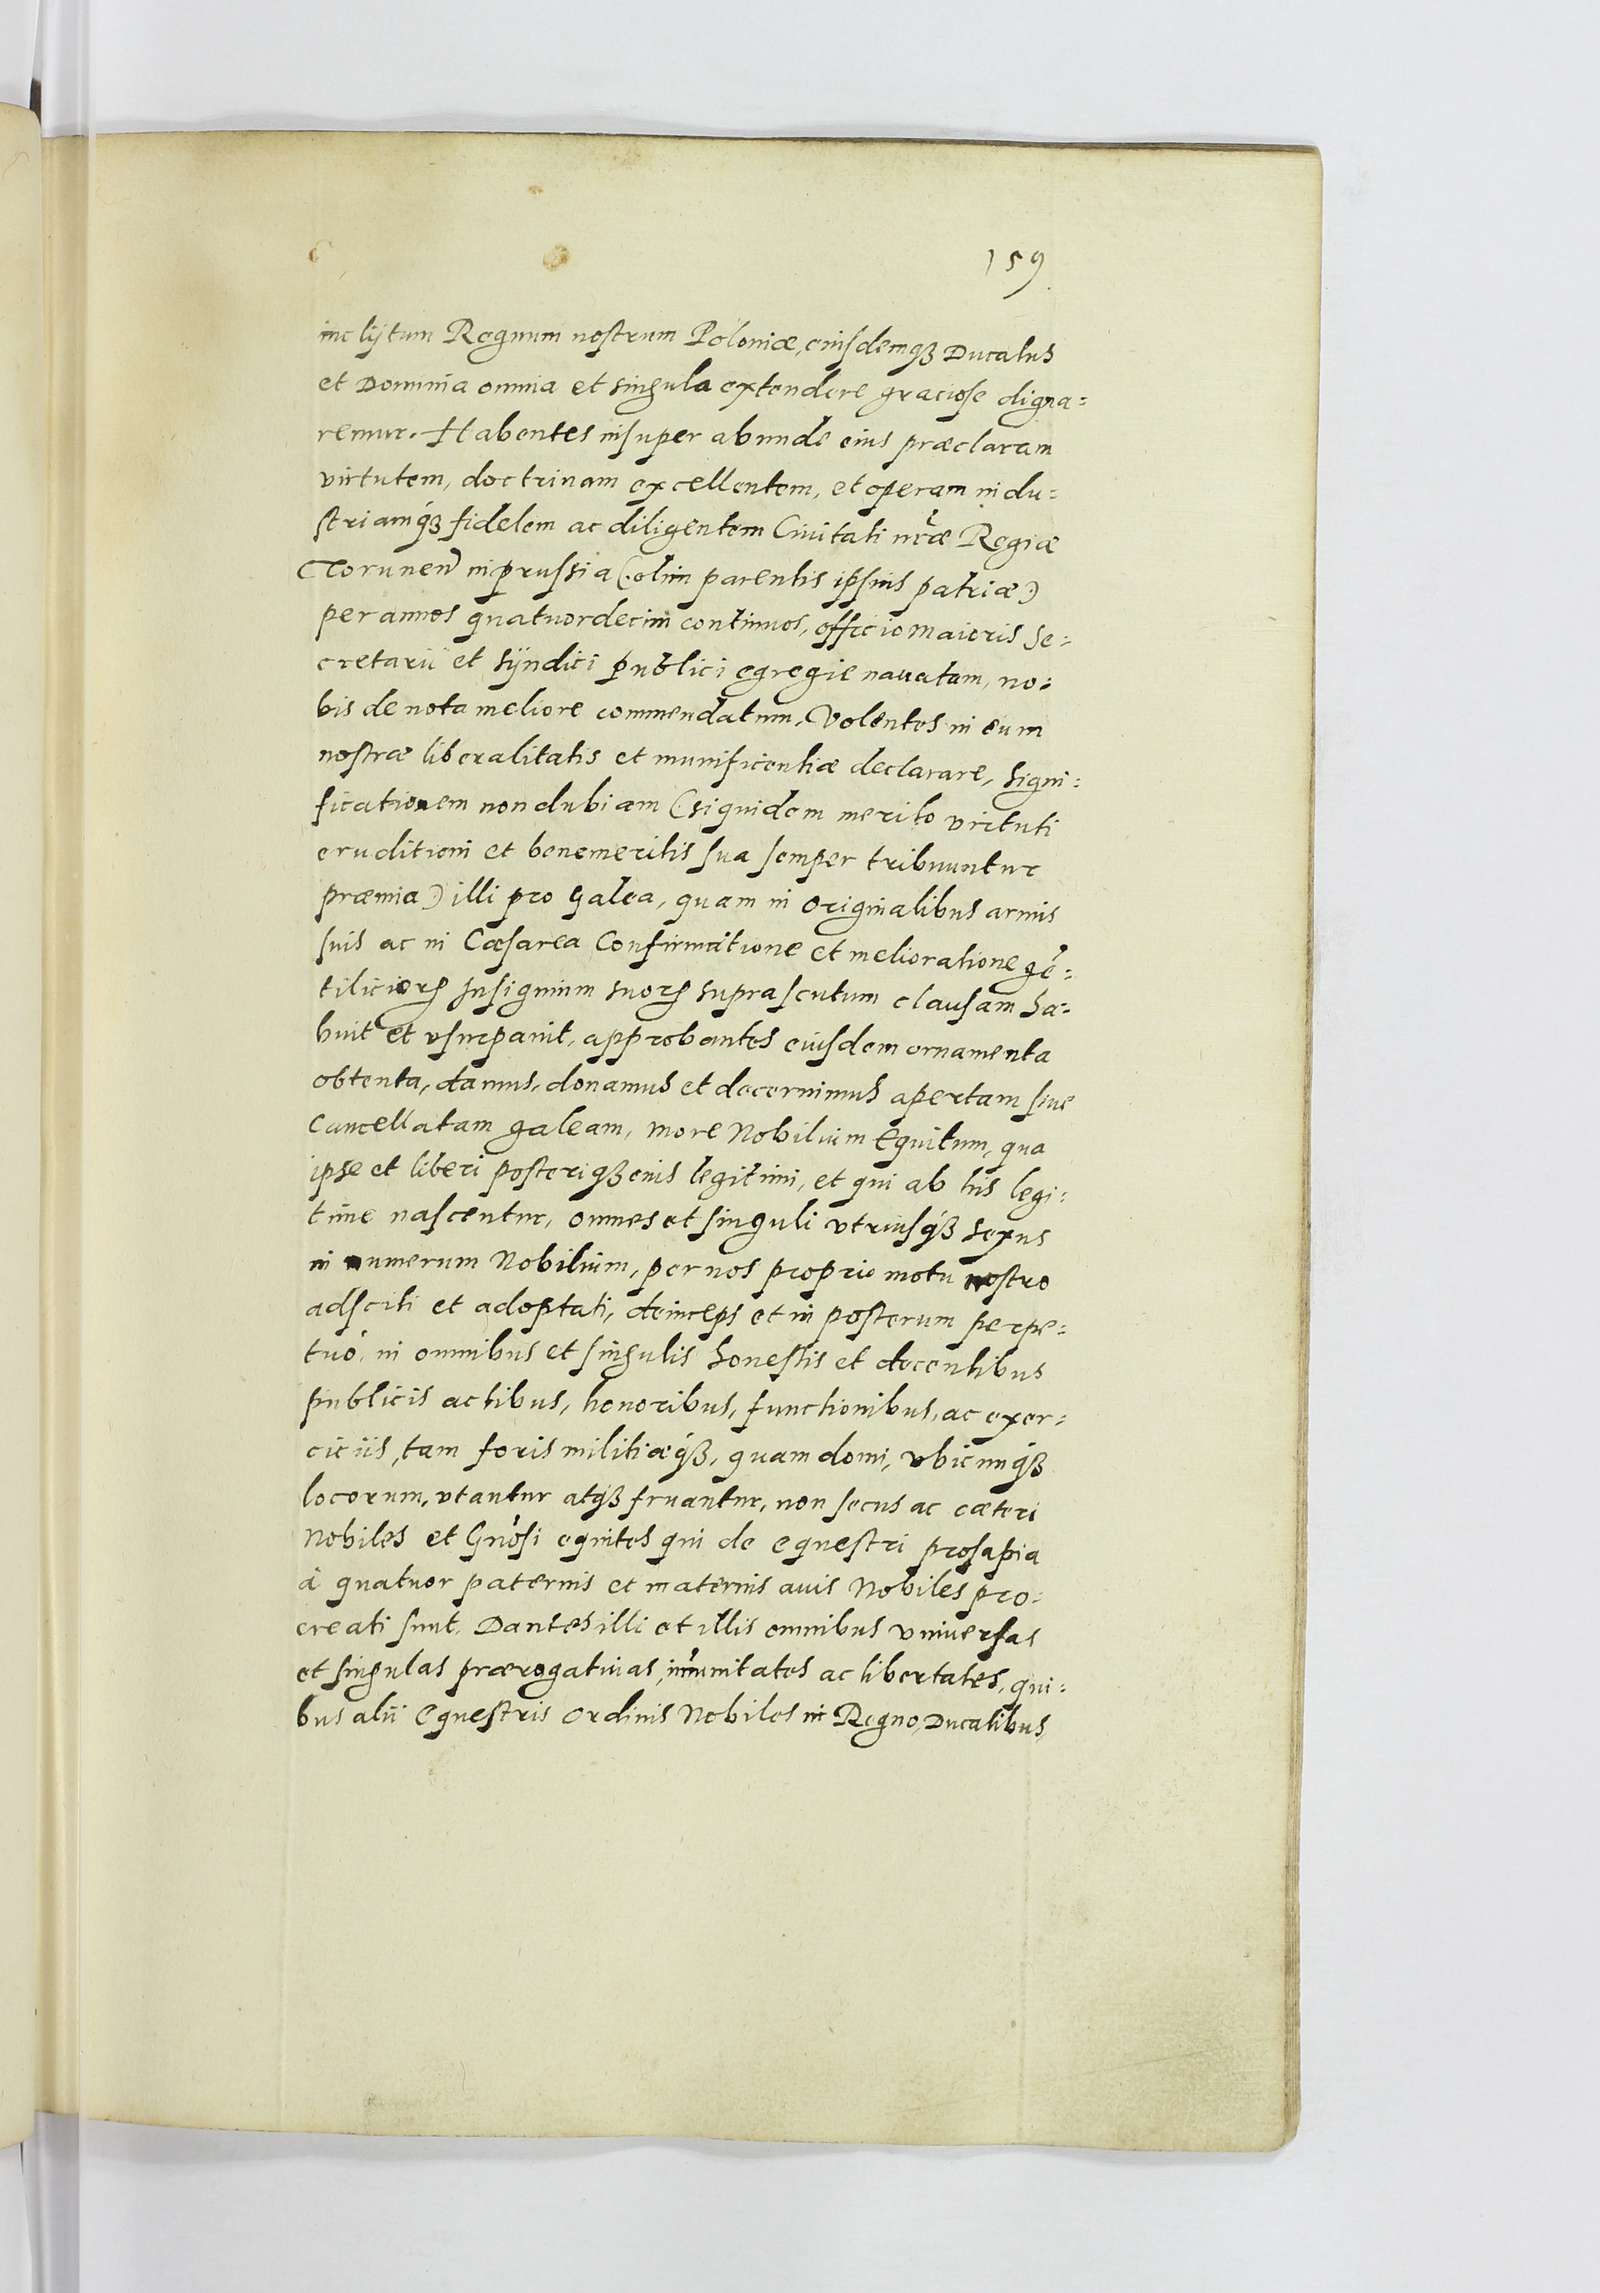 159
inclytum Regnum nostrum Poloniæ, eiusdemqȝ Ducatus
et Dominia omnia et singula extendere graciose digna=
remur. Habentes insuper abunde eius præclaram
virtutem, doctrinam excellentem, et operam indu=
striamqȝ fidelem ac diligentem Ciuitati nr̃æ Regiæ
Torunen̄ in prussia (: olim parentis ipsius patriæ :)
per annos quatuordecim continuos, officio maioris Se=
cretarii et Syndici publici egregie nauatam, no=
bis de nota meliore commendatum, Volentes in eum
nostræ liberalitatis et munificentiæ declarare, signi=
ficationem non dubiam (: siquidem merito virtuti
eruditioni et benemeritis sua semper tribuuntur
præmia :) illi pro galea, quam in originalibus armis
suis ac in Cæsarea Confirmatione et melioratione gē=
tilicioꝝ Insignium suoꝝ supra scutum clausam ha=
buit et vsurpauit, approbantes eiusdem ornamenta
obtenta, damus, donamus et decernimus apertam siue
Cancellatam galeam, more Nobilium Equitum, qua
ipse et liberi posteriqȝ eius legitimi, et qui ab his legi=
time nascentur, omnes et singuli vtriusqȝ sexus
in numerum Nobilium, per nos proprio motu nostro
adsciti et adoptati, deinceps et in posterum perpe=
tuò, in omnibus et singulis honestis et decentibus
publicis actibus, honoribus, functionibus, ac exer=
ciciis, tam foris militiæqȝ, quam domi, vbicunqȝ
locorum, vtantur atqȝ fruantur, non secus ac cæteri
Nobiles et Gñosi equites qui de equestri prosapia
à quatuor paternis et maternis auis Nobiles pro=
creati sunt. Dantes illi et illis omnibus vniuersas
et singulas prærogatiuas, im̄unitates ac libertates, qui=
bus alii Equestris ordinis Nobiles in Regno, Ducatibus